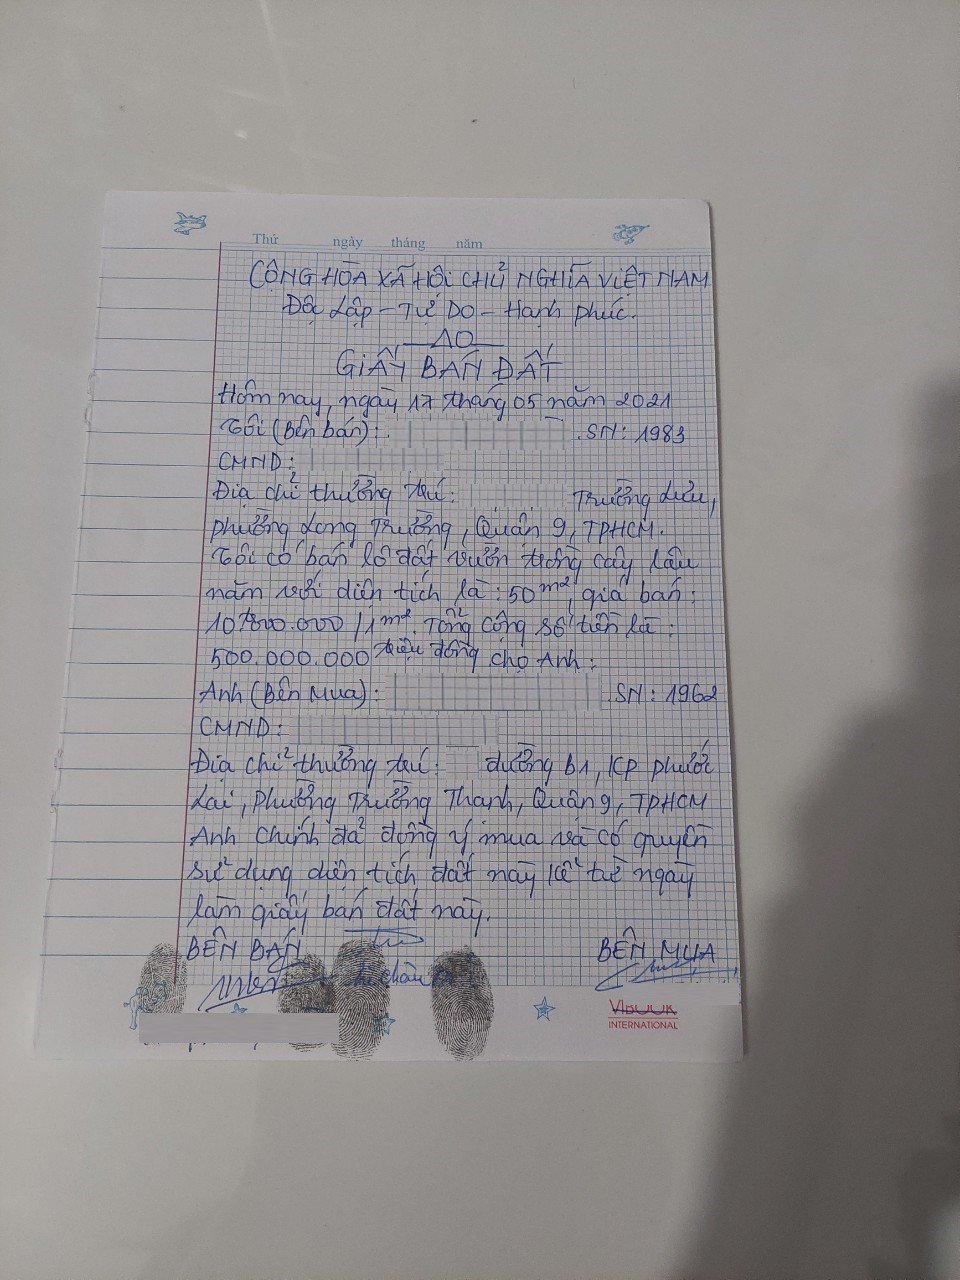 Thứ ngày tháng năm
CỘNG HÒA XÃ HỘI CHỦ NGHĨA VIỆT NAM
Độc Lập - Tự Do - Hạnh phúc.
GIẤY BÁN ĐẤT
Hôm nay, ngày 17 tháng 05 năm 2021
Tôi (Bên bán): SN: 1983
CMND:
Địa chỉ thường trú: Trường Lưu,
phường Long Trường, Quận 9, TPHCM.
Tôi có bán lô đất vườn trồng cây lâu
năm với diện tích là: 50 m², giá bán:
000.000 / 1m². Tổng cộng số tiền là:
500.000.000 triệu đồng cho Anh:
Anh (Bên Mua): SN: 1962
CMND:
Địa chỉ thường trú: đường B1, KP phước
Lai, phường Trường Thạnh, Quận 9, TPHCM
Anh Chính đã đồng ý mua và có quyền
sử dụng diện tích đất này kể từ ngày
làm giấy bán đất này.
BÊN BÁN BÊN MUA
VIBOOK
INTERNATIONAL